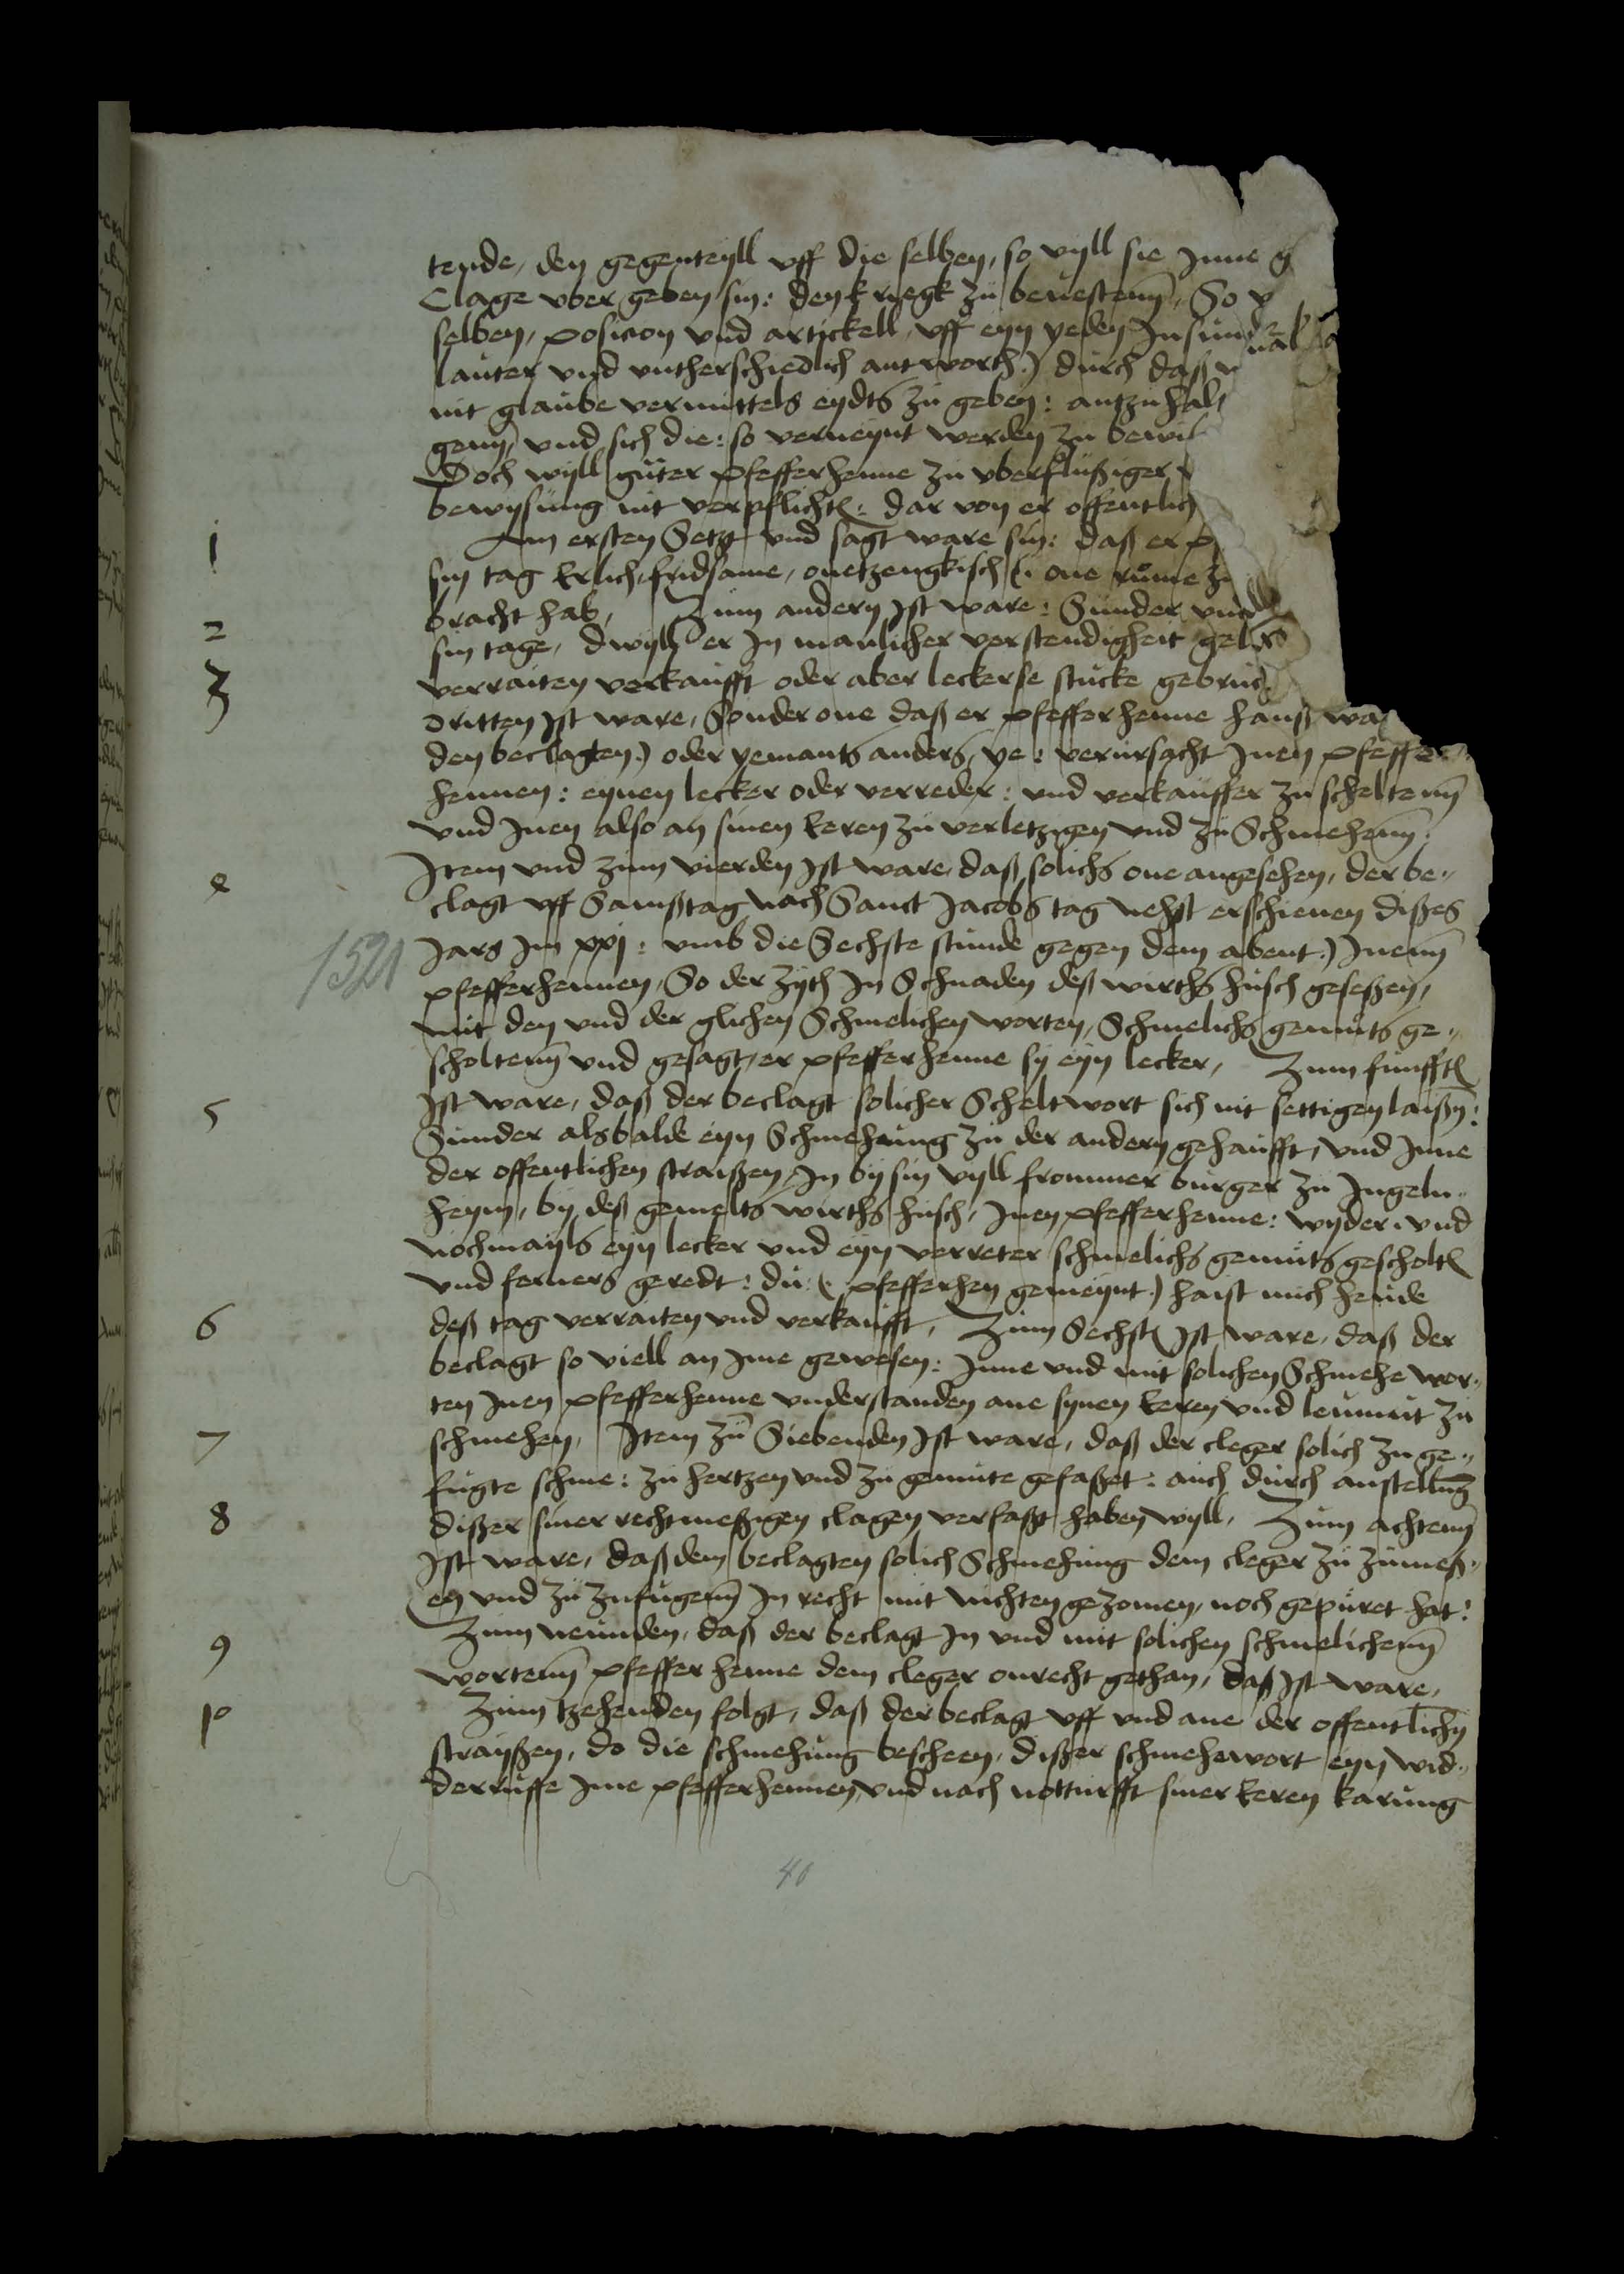 tende, den gegenteyll vff die selben, so vyll sie Inne g
Clage vber geben sin: den kriegk zu beuestenn, So v
selben, posicion vnd artickell, vff eyn yeden Insund
lauter vnd vntherschiedlich antworth.) durch daß
nit glaube vermittels eydts zu geben: antzuhal
genn, vnd sich die: so verneynt werden zu bewi
Doch wyll guter pfefferhenne zu vberflußiger
bewysung nit verpflicht: dar von er offentlich
1 Am ersten Setzt vnd sagt ware sin: daß er p
sin tag Erlich, fridsame, onetzengkisch (: one rume zu
2 bracht hab, Zum andern Ist ware: Sunder vnd
sin tage, dwyll er In manlicher verstendigheit gel
3 verraiten verkaufft oder aber leckerse stucke gebruc
Dritten Ist ware, Sonder one daß er pfefferhenne hanß wa
den beclagten.) oder yemants anders, ye: verursacht Inen pfeffer
hennen: eynen lecker oder verreder: vnd verkauffer zu scheltenn
vnd Inen also an sinen Eeren zu verletzigen vnd zu Schmehenn.
4 Item vnd zum vierden Ist ware, daß solichs one angesehen, der be-
clagt vff Samßtag nach Sanct Jacobs tag nehst erschienen dißes
1521 Jars Im xxj: vmb die Sechste stunde gegen dem abent.) Inenn
pfefferhennen, So der zyth In Schnaden deß wirths husch geseßen,
mit den vnd der glichen Schmelichen worten, Schmelichs gemuts ge-
scholtenn vnd gesagt, er pfefferhenne sy eyn lecker, Zum funfft
5 Ist ware, daß der beclagt solicher Scheltwort sich nit settigen laißn:
Sunder alsbalde eyn Schmehung zu der andern gehaufft, vnd Inne
der offentlichen straißen, In by sin vyll frommer burger zu Ingeln-
heym, by deß gemelts wirths husch, Inen pfefferhenne: wyder vnd
nochmayls eyn lecker vnd eyn verreter schmelichs gemuts gescholt
vnd ferners geredt: du (: pfefferhen gemeynt.) haist mich heude
6 deß tag verraiten vnd verkaufft, Zum Sechst Ist ware, daß der
beclagt so viell an Ime gewesen: Inne vnd mit solichen Schmehe wor-
ten Inen pfefferhenne vnderstanden ane synen Eeren vnd leumut zu
7 schmehen, Item zu Siebenden Ist ware, daß der cleger solich zu ge-
fugte schme: zu hertzen vnd zu gemute gefaßet: auch durch anstellung
8 dißer siner rechtmeßigen clagen verfaßt haben wyll, Zum achtenn
Ist ware, daß dem beclagten solich Schmehung dem cleger zu zumeß-
en vnd zu zufugenn In recht mit nichten gezomen, noch gepuret hat:
9 Zum neunden, daß der beclagt In vnd mit solichen schmelichenn
wortenn pfefferhenne dem cleger onrecht gethan, daß Ist ware,
10 Zum tzehenden folgt, daß der beclagt vff vnd ane der offentlichn
strayßen, do die schmehung bescheen, dißer schmehewort eyn wid-
derruffe Ime pfefferhennen, vnd nach notturfft siner Eeren karung
40